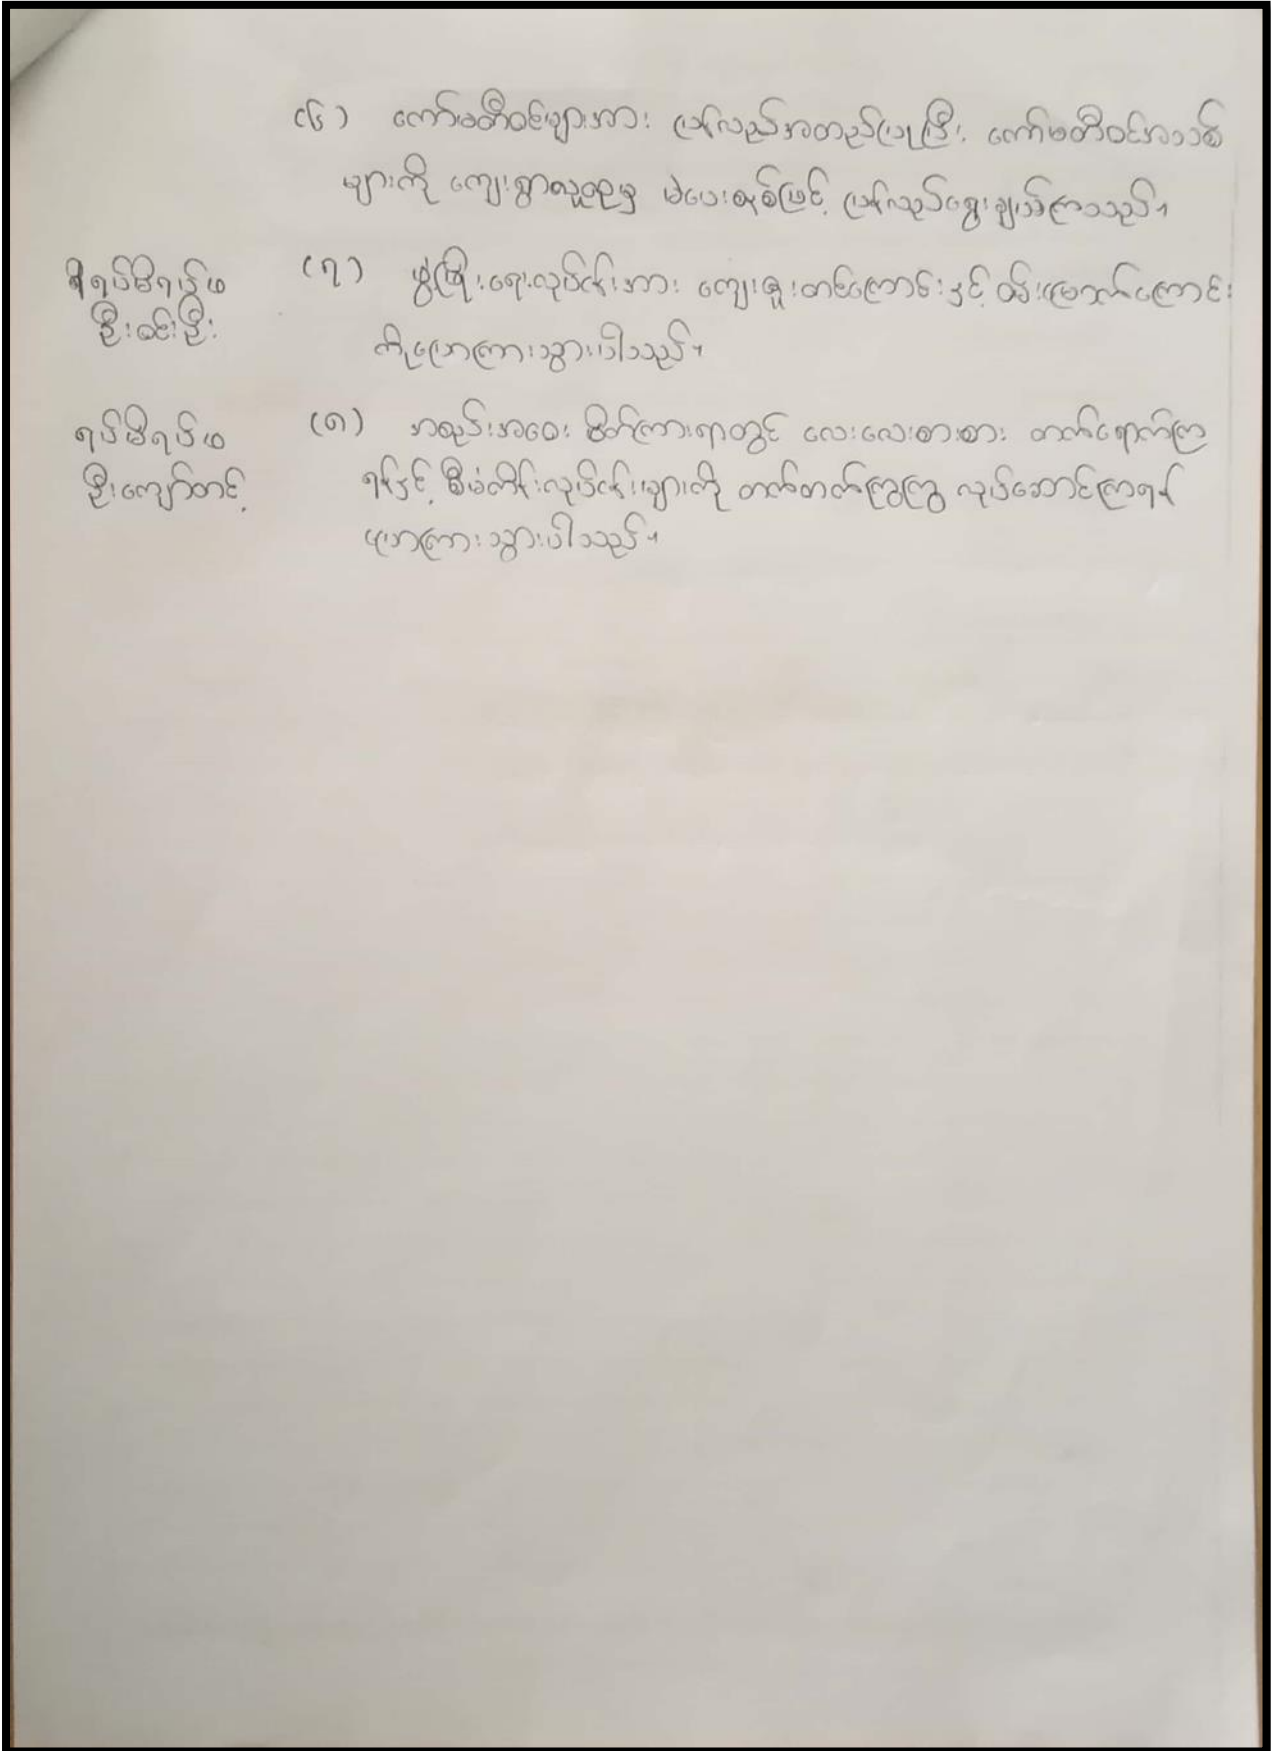 (၆) ကော်မတီဝင်များအား ပြန်လည်အတည်ပြုပြီး ကော်မတီဝင်အသစ်
များကို ကျေးရွာလူထုမှ မဲပေးစနစ်ဖြင့် ပြန်လည်ရွေးချယ်ကြသည်။
ရပ်မိရပ်ဖ (၇) ဖွံ့ဖြိုးရေးလုပ်ငန်းအား ကျေးဇူးတင်ကြောင်းနှင့် ဝမ်းမြောက်ကြောင်း
ဦးဝင်းဦး
ကိုပြောကြားသွားပါသည်။
ရပ်မိရပ်ဖ (၈) အစည်းအဝေး ဖိတ်ကြားရာတွင် လေးလေးစားစား တက်ရောက်ကြ
ဦးကျော်တင့် ရန်နှင့် စီမံကိန်းလုပ်ငန်းများကို တက်တက်ကြွကြွ လုပ်ဆောင်ကြရန်
ပြောကြားသွားပါသည်။